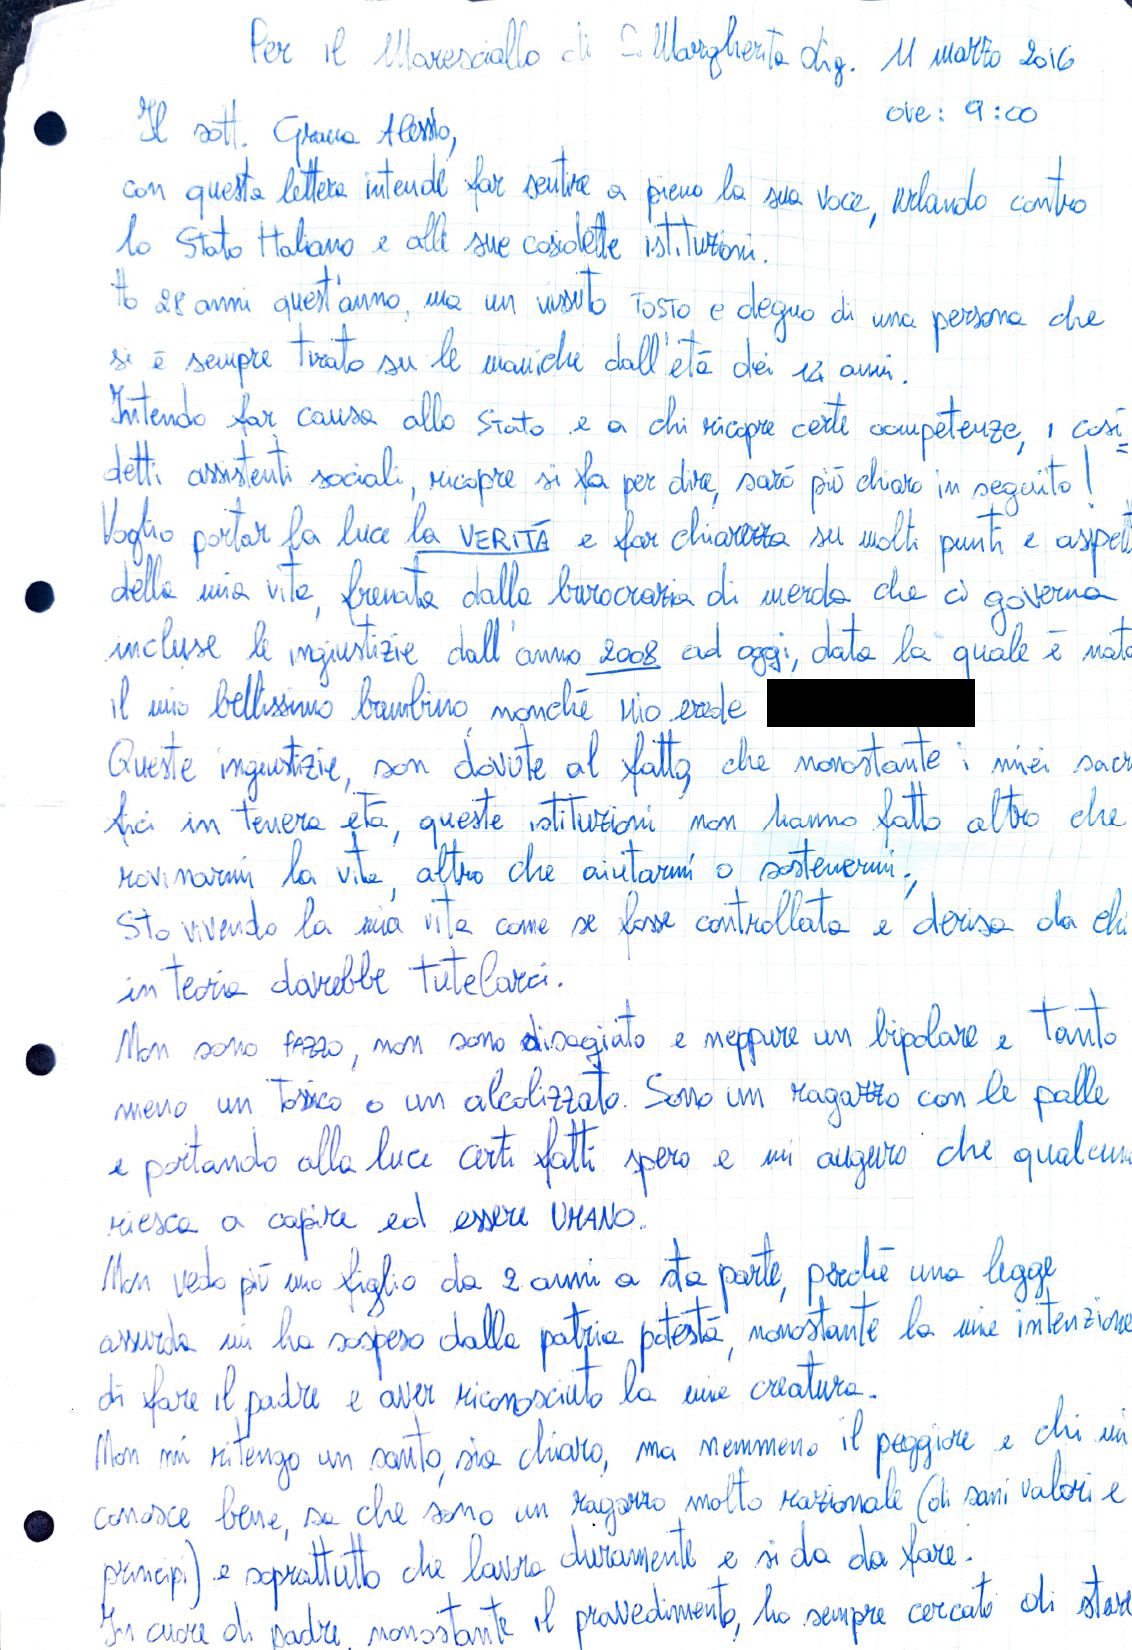 Per il Maresciallo di S. Margherita Lig. 11 marzo 2016
ore: 9:00
Il sott. Grana Alessio,
con questa lettera intende far sentire a pieno la sua voce, urlando contro
lo Stato Italiano e alle sue cosidette istituzioni.
Ho 28 anni quest'anno, ma un vissuto TOSTO e degno di una persona che
si è sempre tirato su le maniche dall'età dei 12 anni.
Intendo far causa allo Stato e a chi ricopre certe competenze, i così
detti assistenti sociali, ricopre si fa per dire, sarò più chiaro in seguito!
Voglio portar la luce la VERITÀ e far chiarezza su molti punti e aspett
della mia vita, frenata dalla burocrazia di merda che ci governa
incluse le ingiustizie dall'anno 2008 ad oggi, data la quale è nato
il mio bellissimo bambino, nonché mio erede
Queste ingiustizie, son dovute al fatto, che nonostante i miei sacr
fici in tenera età, queste istituzioni non hanno fatto altro che
rovinarmi la vita, altro che aiutarmi o sostenermi;
Sto vivendo la mia vita come se fosse controllata e derisa da chi
in teoria dovrebbe tutelarci.
Non sono PAZZO, non sono disagiato e neppure un bipolare e tanto
meno un tossico o un alcolizzato. Sono un ragazzo con le palle
e portando alla luce certi fatti spero e mi auguro che qualcuno
riesca a capire ed essere UMANO.
Non vedo più mio figlio da 2 anni a sta parte, perchè una legge
assurda mi ha sospeso dalla patria potestà, nonostante la mia intenzione
di fare il padre e aver riconosciuto la mia creatura.
Non mi ritengo un santo, sia chiaro, ma nemmeno il peggiore e chi mi
conosce bene, sa che sono un ragazzo molto razionale (di sani valori e
principi) e soprattutto che lavora duramente e si da da fare.
In cuore di padre, nonostante il provvedimento, ho sempre cercato di stare